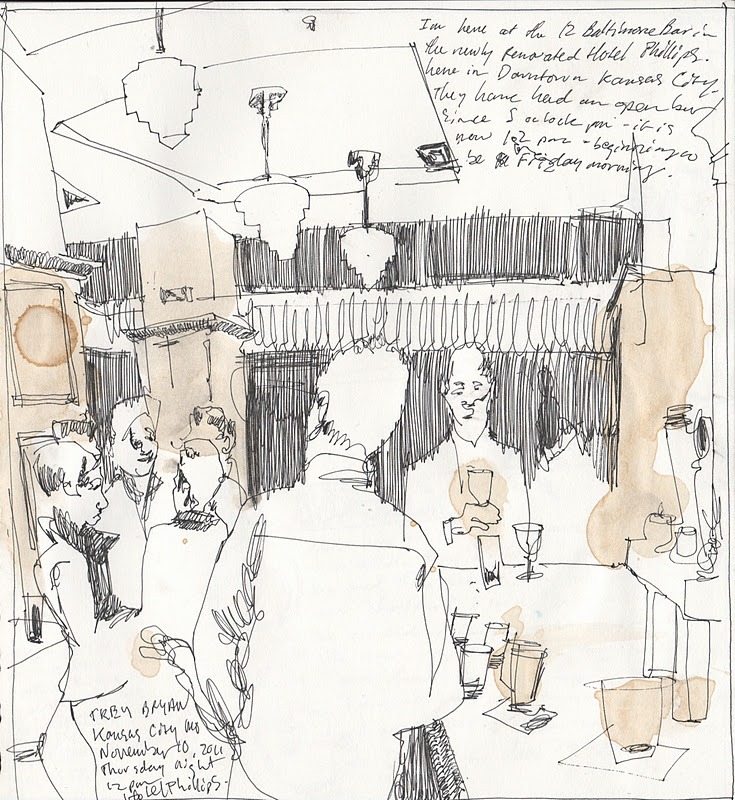 I'm here at the 12 Baltimore Bar in
the newly renovated Hotel Phillips.
here in Downtown Kansas City.
They have had an open bar
since 5 oclock pm - it is
now 12 pm - beginning to
be Friday morning.
TREY BRYAN
Kansas City MO
November 10, 2011
Thursday night
12 pm
Hotel Phillips.